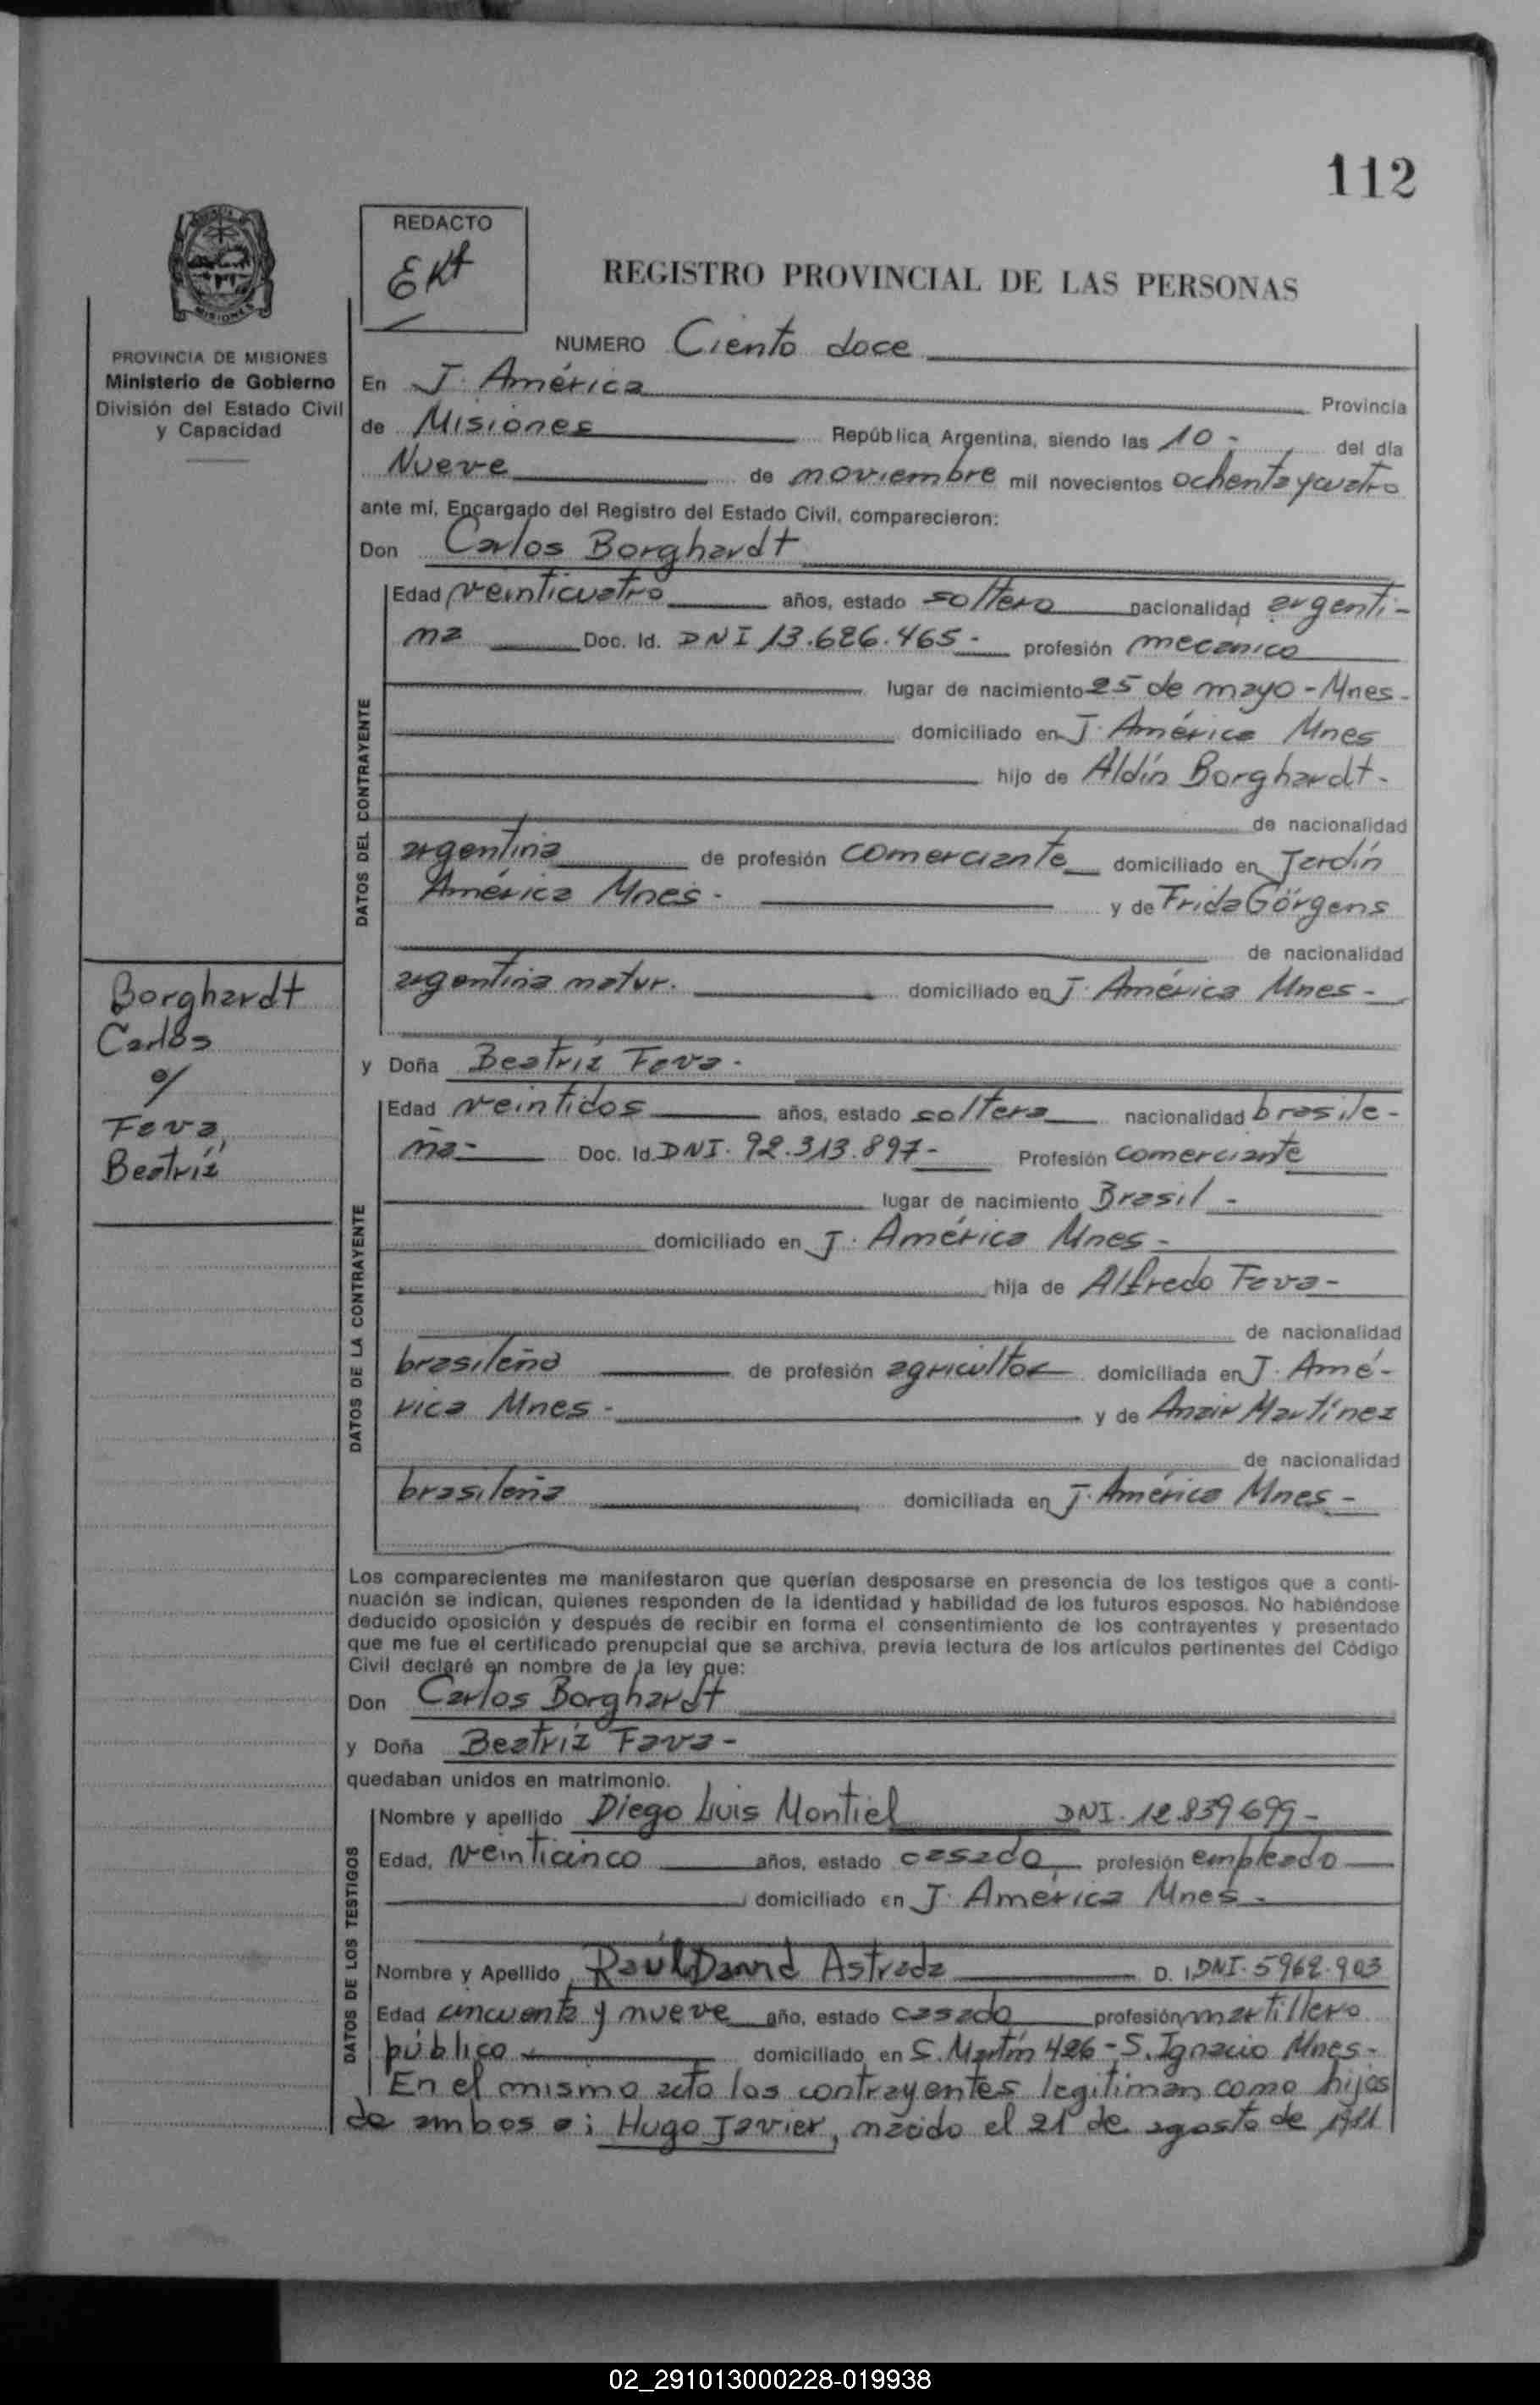 112
REDACTO
EKt
REGISTRO PROVINCIAL DE LAS PERSONAS
MISIONES
PROVINCIA DE MISIONES
Ministerio de Gobierno
División del Estado Civil
y Capacidad
NUMERO Ciento doce
En J. América Provincia
de Misiones República Argentina, siendo las 10- del día
Nueve de noviembre mil novecientos ochenta y cuatro
ante mí, Encargado del Registro del Estado Civil, comparecieron:
Don Carlos Borghardt
DATOS DEL CONTRAYENTE
Edad veinticuatro años, estado soltero nacionalidad argenti-
na Doc. Id. DNI 13.686.465- profesión mecanico
lugar de nacimiento 25 de mayo - Mnes-
domiciliado en J. América Mnes
hijo de Aldín Borghardt-
de nacionalidad
argentina de profesión comerciante domiciliado en Jardín
América Mnes- y de Frida Görgens
de nacionalidad
argentina natur. domiciliado en J. América Mnes-
Borghardt
Carlos
c/
Fava,
Beatríz
y Doña Beatríz Fava-
DATOS DE LA CONTRAYENTE
Edad veintidos años, estado soltera nacionalidad brasile-
ña- Doc. Id. DNI. 92.313.897- Profesión comerciante
lugar de nacimiento Brasil-
domiciliado en J. América Mnes-
hija de Alfredo Fava-
de nacionalidad
brasileño de profesión agricultor domiciliada en J. Amé-
rica Mnes- y de Anair Martínez
de nacionalidad
brasileña domiciliada en J. América Mnes-
Los comparecientes me manifestaron que querían desposarse en presencia de los testigos que a conti-
nuación se indican, quienes responden de la identidad y habilidad de los futuros esposos. No habiéndose
deducido oposición y después de recibir en forma el consentimiento de los contrayentes y presentado
que me fue el certificado prenupcial que se archiva, previa lectura de los artículos pertinentes del Código
Civil declaré en nombre de la ley que:
Don Carlos Borghardt
y Doña Beatríz Fava-
quedaban unidos en matrimonio.
DATOS DE LOS TESTIGOS
Nombre y apellido Diego Luis Montiel DNI. 12.839.699-
Edad, veinticinco años, estado casado profesión empleado
domiciliado en J. América Mnes-
Nombre y Apellido Raúl David Astrada D. I DNI. 5962.903
Edad cincuenta y nueve año, estado casado profesión martillero
público domiciliado en S. Martín 426 - S. Ignacio Mnes-
En el mismo acto los contrayentes legitiman como hijos
de ambos a: Hugo Javier, nacido el 21 de agosto de 1981
02_291013000228-019938